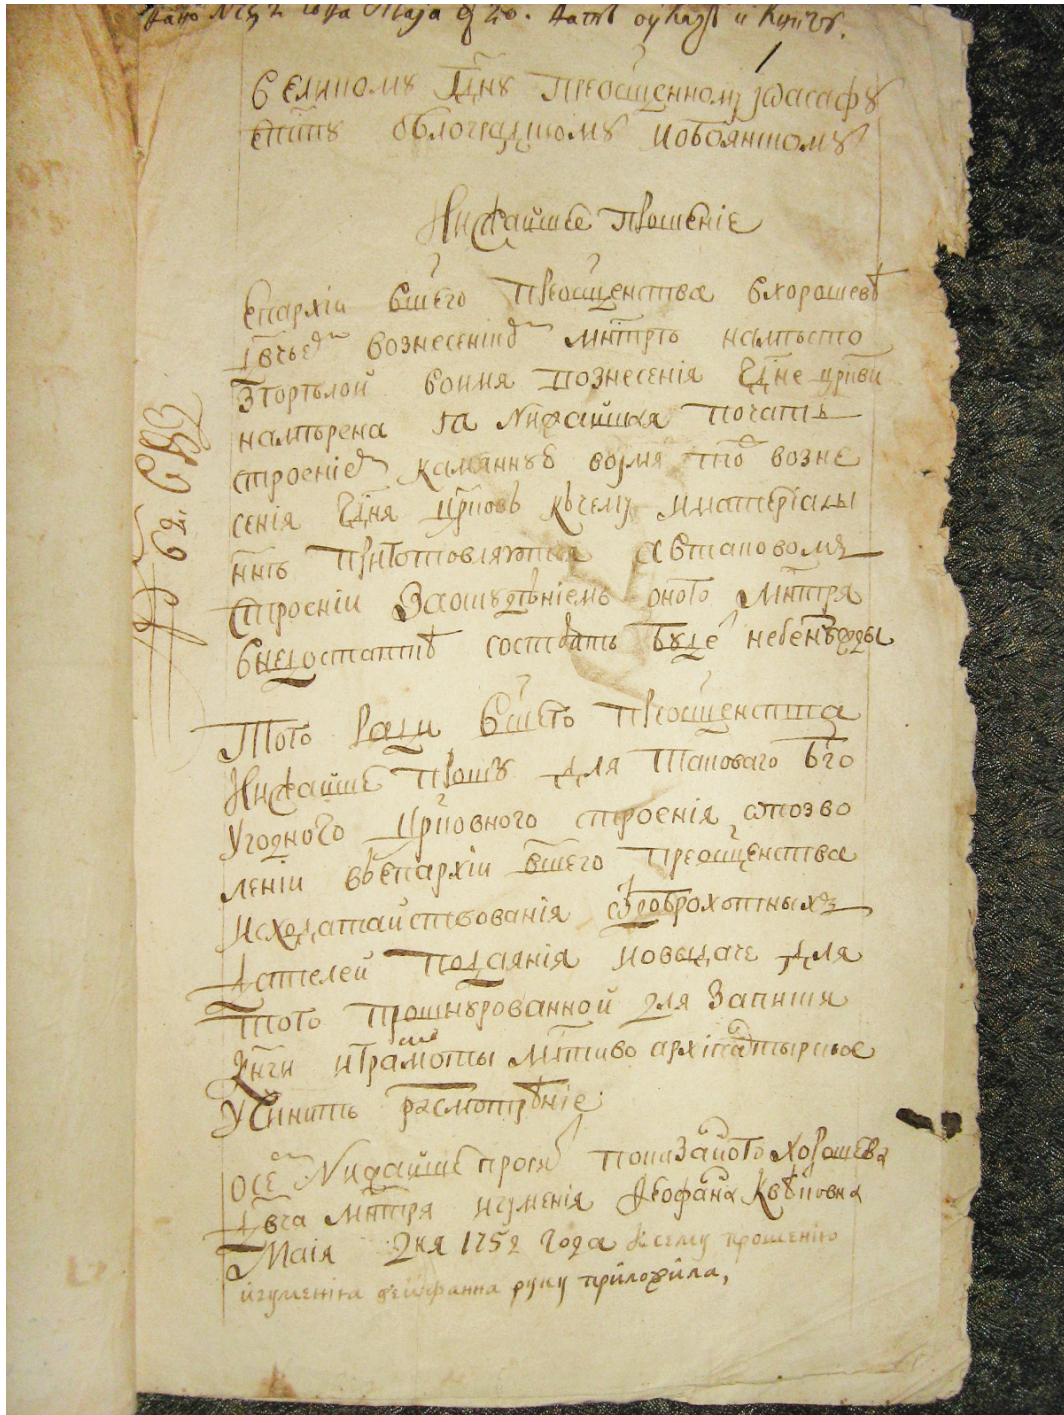 1752 года Маја 20. датъ оуказъ и книгу.
1
Великому Гдну преосщенному Іѡасафу
епкпу белоградскому и обоянскому
Нижайшее прошеніе
Епархіи вшего преосщенства вхорошевѣ
двчьем вознесенском мнтрѣ на мѣсто
згорѣлой во имя вознесенія Гдне цркви
намѣрена я нижайшая почать
строеніем каменную во имя того возне
сенія Гдня црковь къ чему и матеріалы
ннѣ приготовляются а в таковомъ
строеніи за оскуденіемъ оного мнтря
внедостаткѣ состоять буде небезнужды
Того ради вшего преосщенства
Нижайше прошу для таковаго бго
угоднаго црковного строенія ѡ позво
леніи въ епархіи вшего преосщенства
исходатайствованія ѿ доброхотныхъ
дателей подаянія и о выдаче для
того прошнурованной для записки
книги и грамоты млтиво архіпастырское
учинить разсмотрѣніе
О сем нижайше просит показаного хорошева
двча мнтря игуменія Ѳеофана Квѣтковна
Маія дня 1752 года К сему прошенію
игуменіа феѡфанна руку приложила,